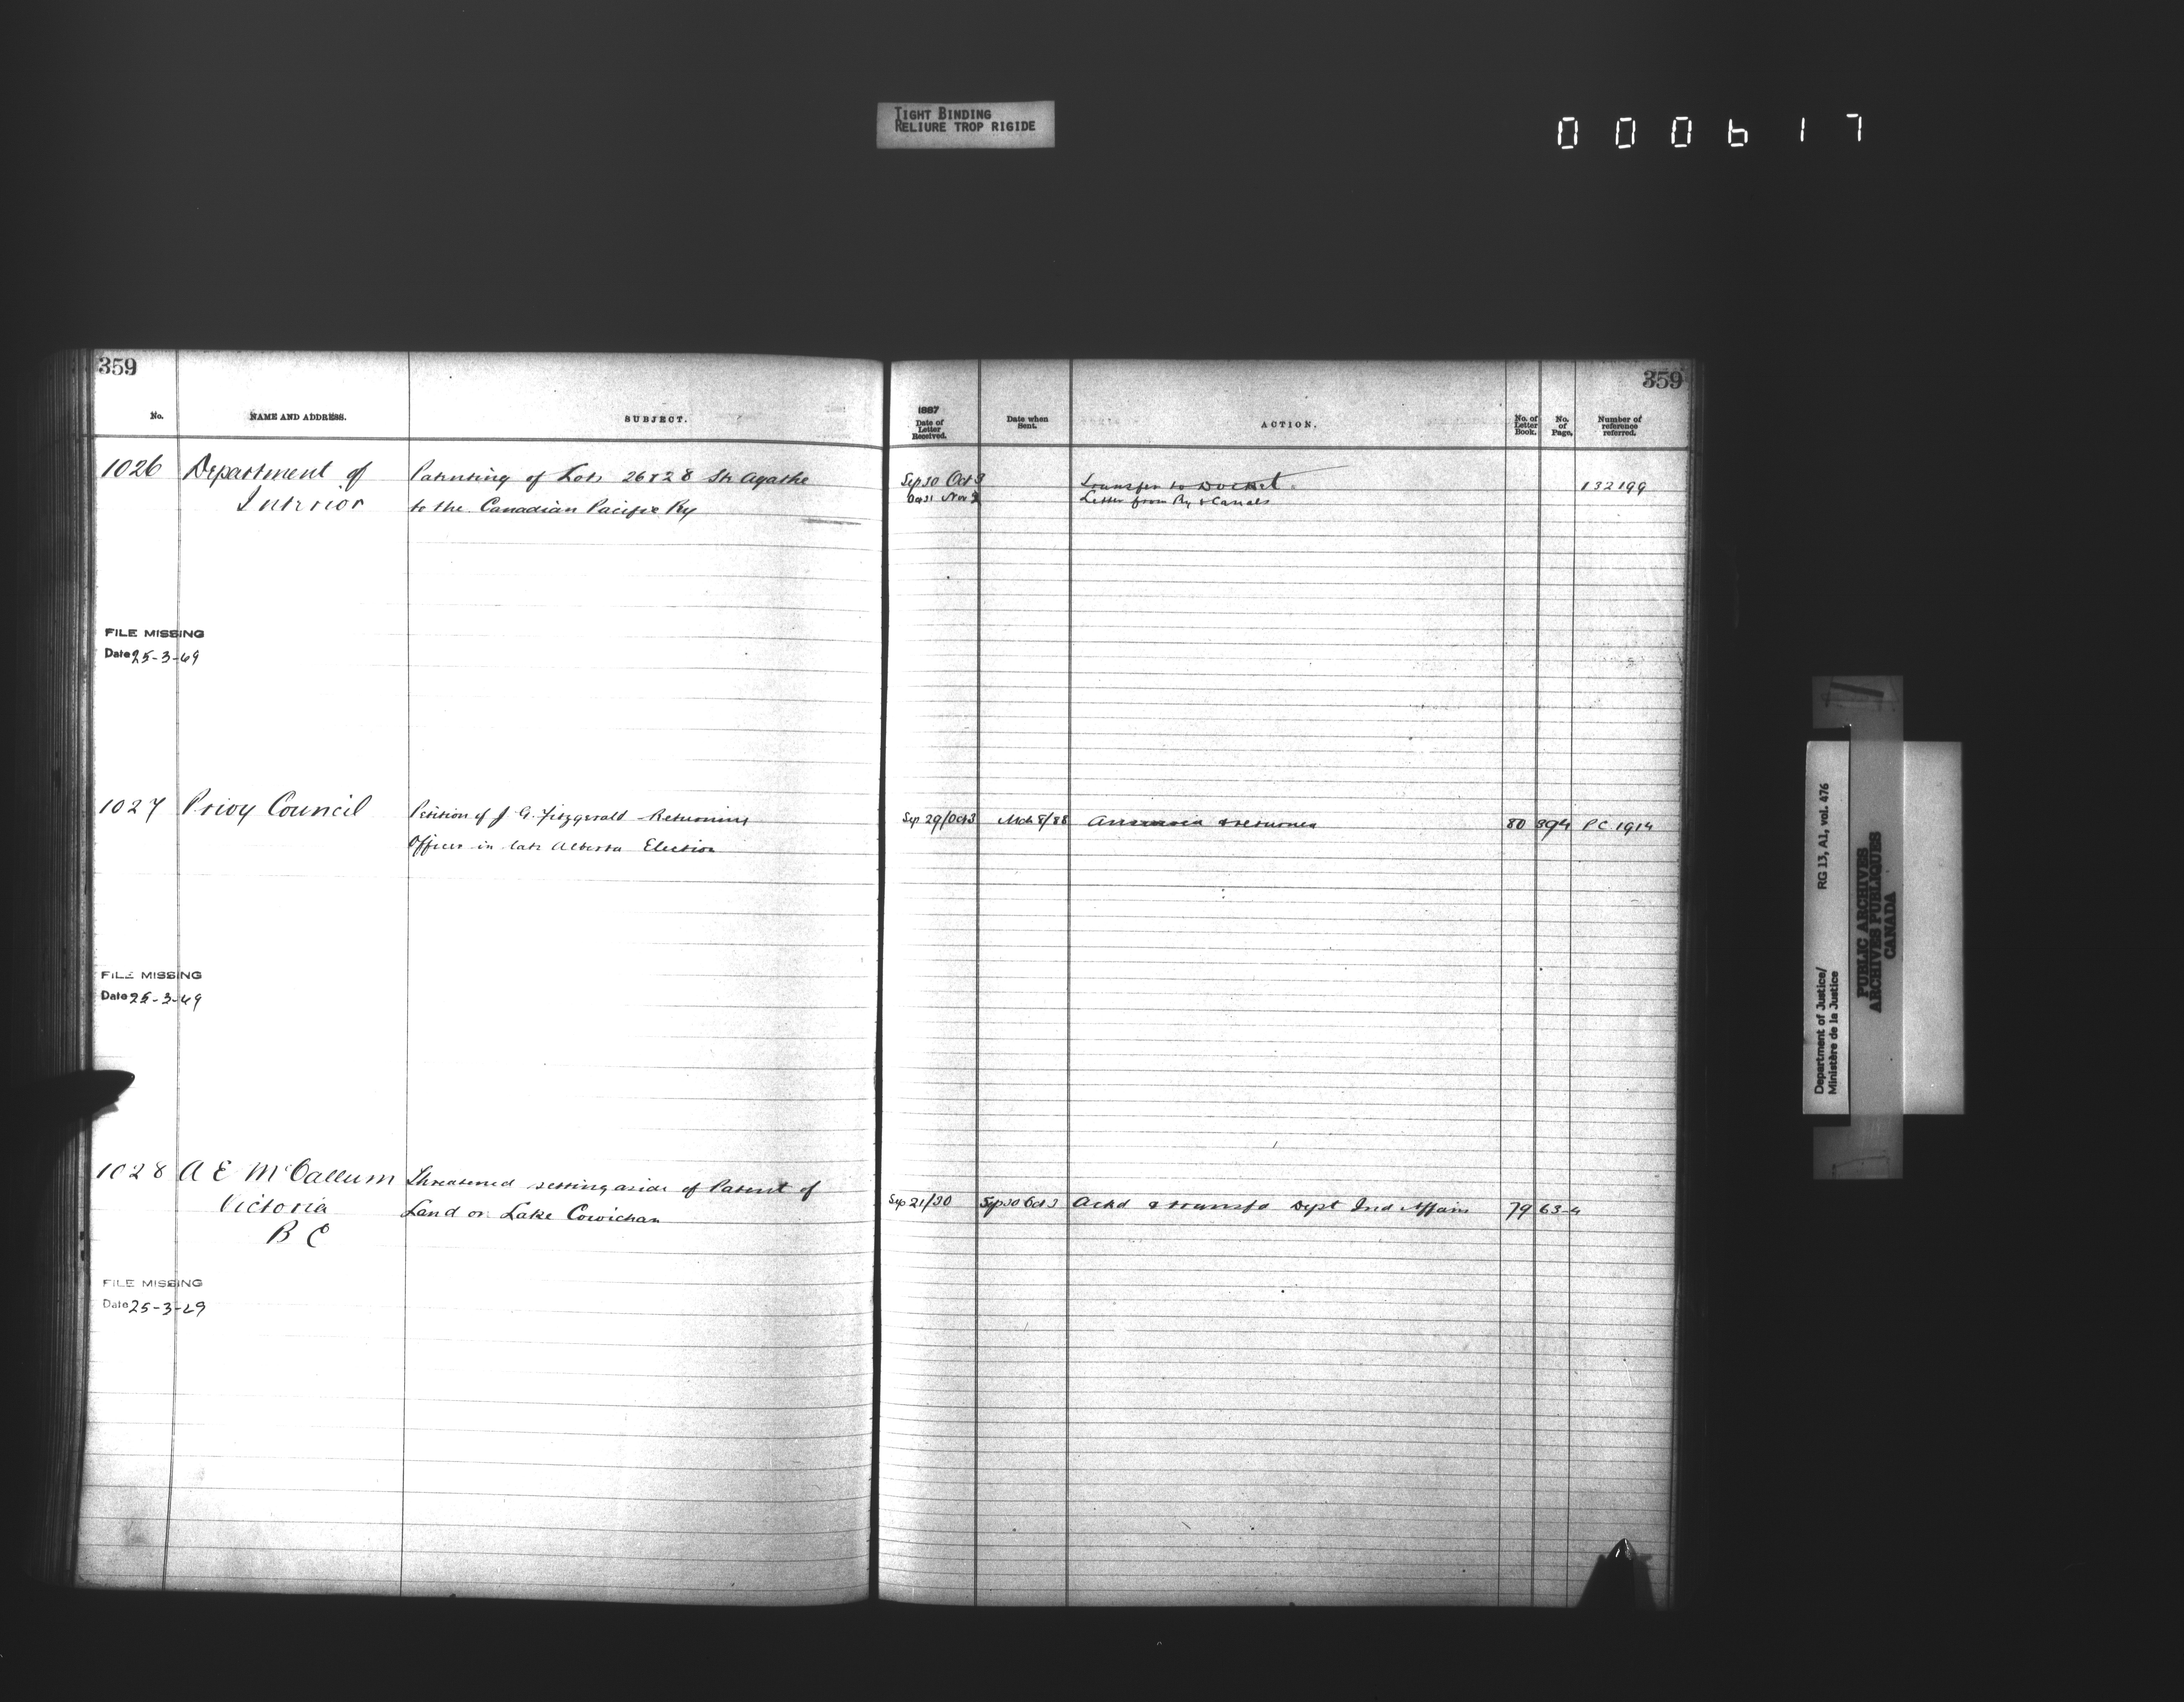 TIGHT BINDING
RELIURE TROP RIGIDE
000617
359
No.
NAME AND ADDRESS.
SUBJECT.
1026
Department of
Interior
Patenting of Lots 26 & 28 Ste Agathe
to the Canadian Pacific Ry
FILE MISSING
Date 25-3-69
1027
Privy Council
Petition of J G. Fitzgerald Returning
Officer in late Alberta Election
FILE MISSING
Date 25-3-69
1028
A E McCallum
Victoria
B C
Threatened setting aside of Patent of
Land on Lake Cowichan
FILE MISSING
Date 25-3-69
359
1887
Date of
Letter
Received.
Date when
Sent.
ACTION.
No. of
Letter
Book.
No.
of
Page.
Number of
reference
referred.
Sep 30 Oct 3
Transfer to Docket
132199
Oct 31 Nov 2
Letter from Ry & Canals
Sep 29/Oct 3
Mch 8/88
Answered & returned
80
394
PC 1914
Sep 21/30
Sep 30 Oct 3
Ackd & transfd Dept Ind Affairs
79
63-4
Department of Justice/
Ministère de la Justice
RG 13, A1, vol. 476
PUBLIC ARCHIVES
ARCHIVES PUBLIQUES
CANADA